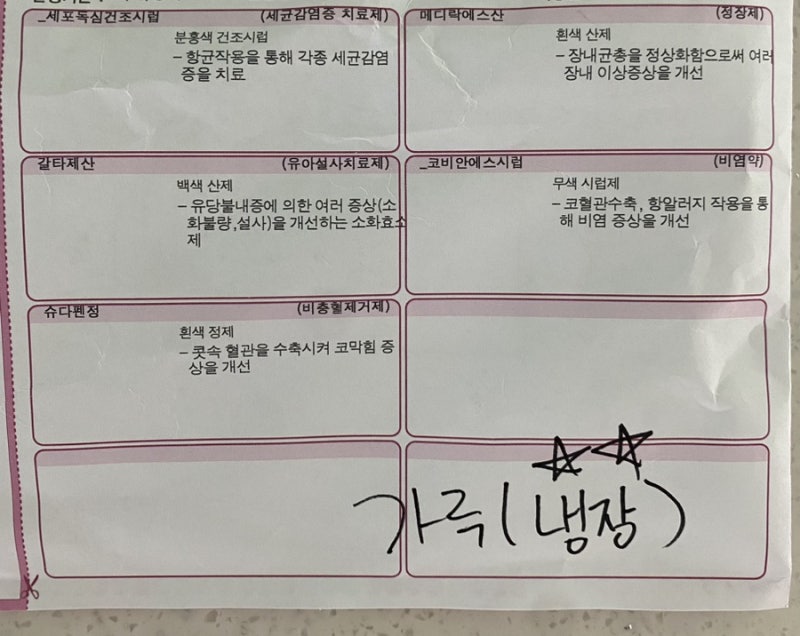 _세포독심건조시럽 (세균감염증 치료제)
분홍색 건조시럽
– 항균작용을 통해 각종 세균감염
증을 치료
메디락에스산 (정장제)
흰색 산제
– 장내균총을 정상화함으로써 여러
장내 이상증상을 개선
갈타제산 (유아설사치료제)
백색 산제
– 유당불내증에 의한 여러 증상(소
화불량,설사)을 개선하는 소화효소
제
_코비안에스시럽 (비염약)
무색 시럽제
– 코혈관수축, 항알러지 작용을 통
해 비염 증상을 개선
슈다펜정 (비충혈제거제)
흰색 정제
– 콧속 혈관을 수축시켜 코막힘 증
상을 개선
가루(냉장)